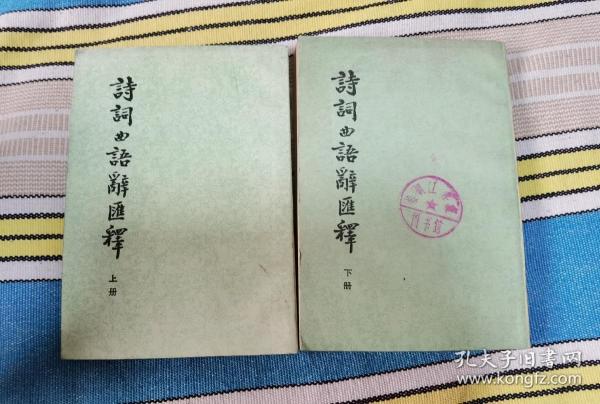 詩詞曲語辭匯釋
上册
詩詞曲語辭匯釋
下册
孔夫子旧书网
www.kongfz.com